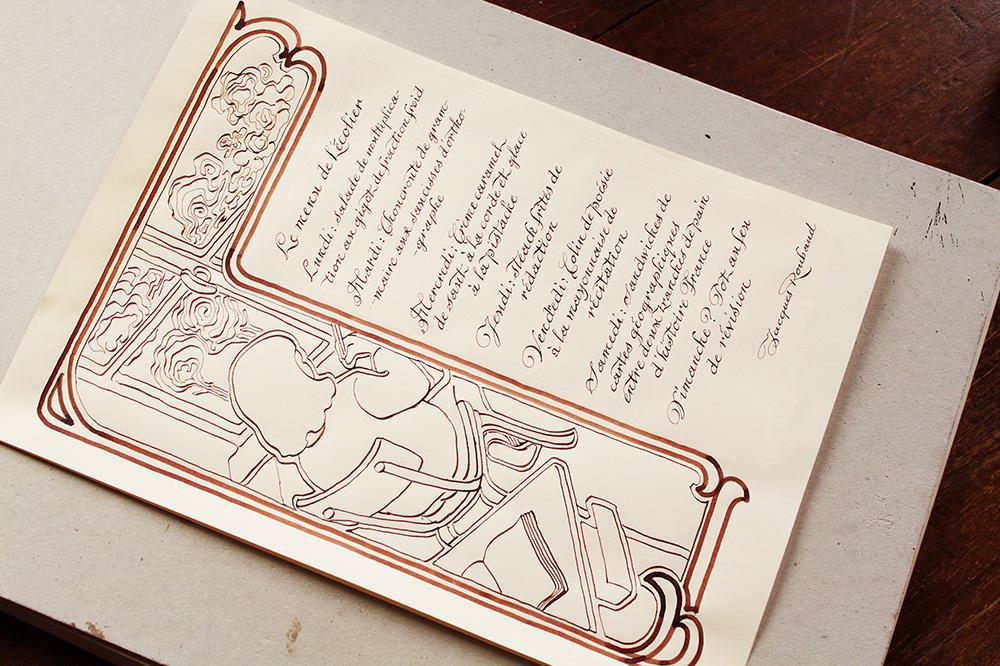 Le menu de l'écolier
Lundi : salade de multiplica-
tion au gigot de fraction froid
Mardi : Choucroute de gram-
maine aux saucisses d'ortho-
graphe
Mercredi : Crème caramel
dessant à la conte et glace
à la pistache
Jeudi : steack frites de
rédaction
Vendredi : Colin de poésie
à la mayonnaise de
récitation
Samedi : Sandwiches de
cartes géographiques
entre deux grandes de pain
d'histoire France
Dimanche : Pot-au-feu
de révision
Jacques Roubaud